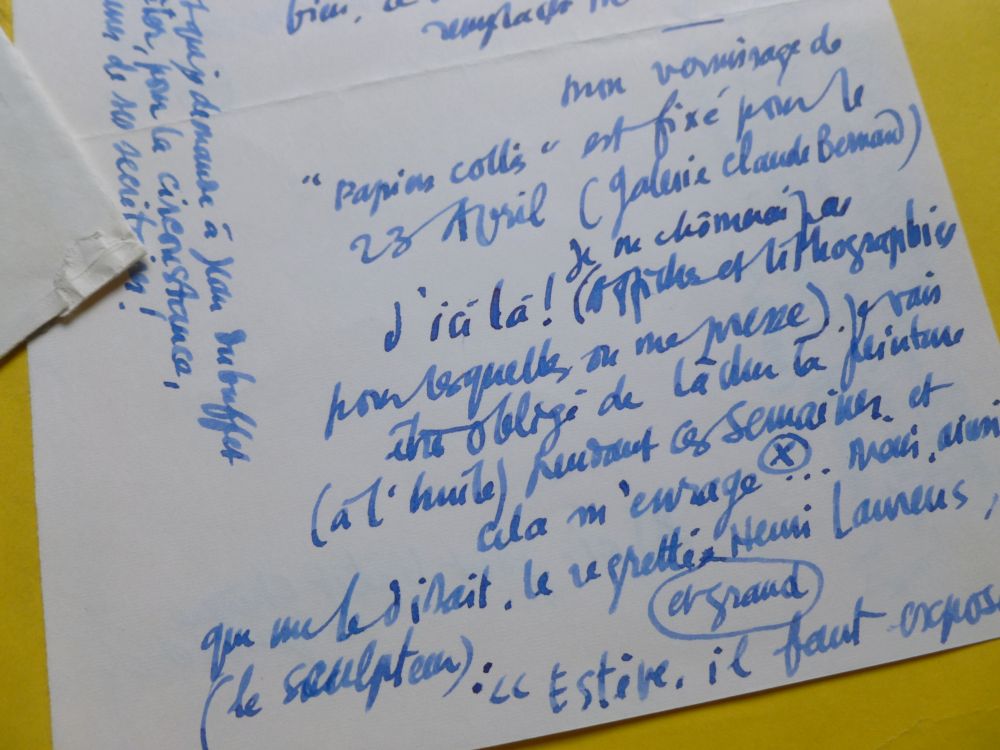 bien, ce
remplacés
mon vernissage de
"Papiers collés" est fixé pour le
23 Avril (Galerie Claude Bernard)
Je ne chômerai pas
d'ici là! (Affiche et lithographies
pour lesquelles on me presse). Je vais
être obligé de lâcher la peinture
(à l'huile) pendant ces semaines et
cela m'enrage (x)... Mais, ainsi
que me le disait, le regretté Henri Laurens,
et grand
(le sculpteur): "Estève, il faut expos
qui, demande à Jean Dubuffet
pour la circonstance,
de ses secrétaires.